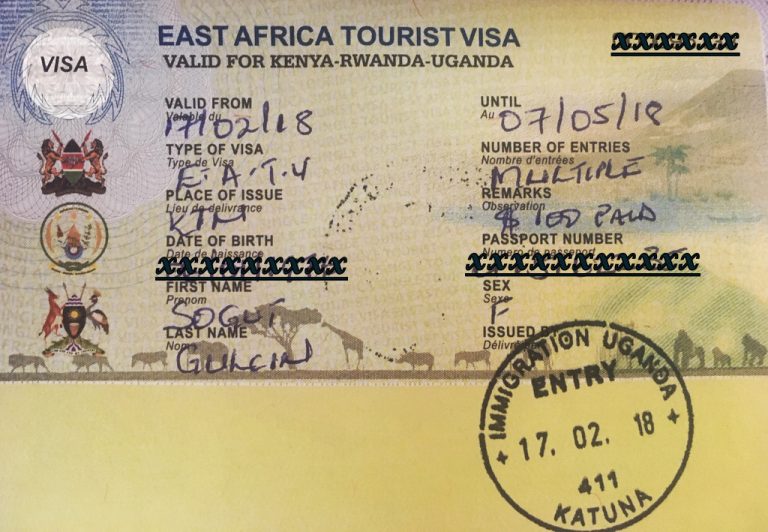 EAST AFRICA TOURIST VISA
xxxxxx
VISA
VALID FOR KENYA-RWANDA-UGANDA
VALID FROM
Valable du
17/02/18
UNTIL
Au
07/05/18
TYPE OF VISA
Type de Visa
E.A.T.V
NUMBER OF ENTRIES
Nombre d'entrées
MULTIPLE
PLACE OF ISSUE
Lieu de delivrance
KTN
REMARKS
Observation
$ 100 PAID
DATE OF BIRTH
Date de naissance
xxxxxxxxxx
PASSPORT NUMBER
Numero de passeport
xxxxxxxxxxxx
FIRST NAME
Prenom
SOGUT
SEX
Sexe
F
LAST NAME
Nom
GULCIN
ISSUED BY
Délivré
IMMIGRATION UGANDA
ENTRY
17. 02. 18
411
KATUNA